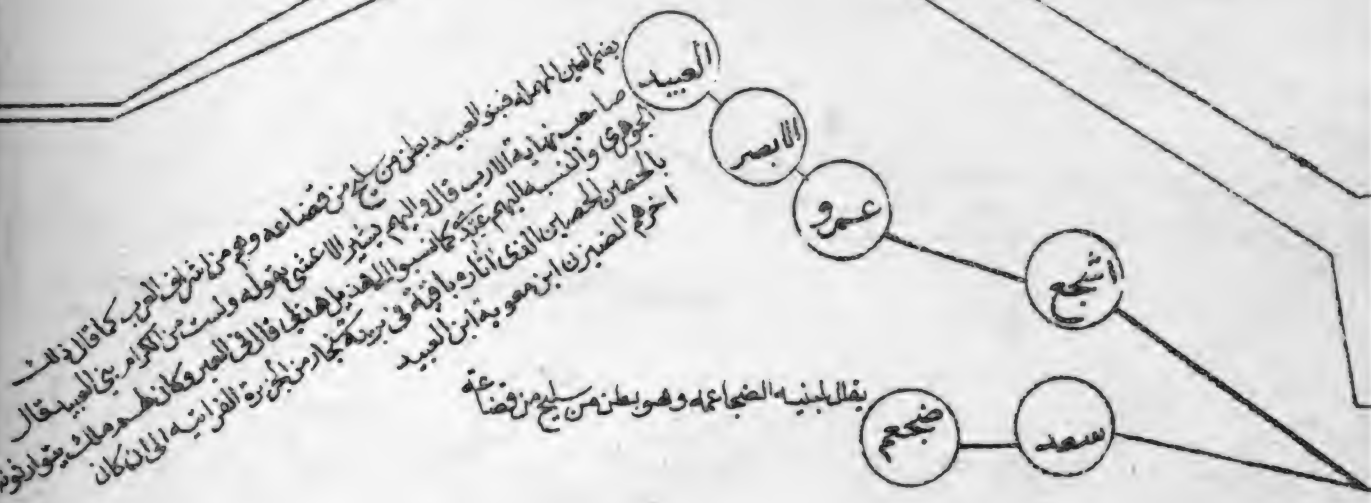 العبيد
بضم العين المهمله فبنو العبيد بطن من سليح من قضاعه وهم من اشراف العرب كما قال ذلك
صاحب نهاية الارب قال واليهم يشير الاعشى بقوله ولست من الكرام بني العبيد قال
الجوهري والنسبه اليهم عبدي كما نسبوا الى هذيل هذلي قال في العبر وكان لهم ملك يتوارثونه
بالحصين الحصين الذي اثاره باقية في برية سنجار من الجزيرة الفراتيه الى ان كان
اخرهم الضيزن ابن معوية ابن العبيد
الابصر
عمرو
اشجع
سعد
ضجعم
يقال لبنيه الضجاعمه وهو بطن من سليح من قضاعة